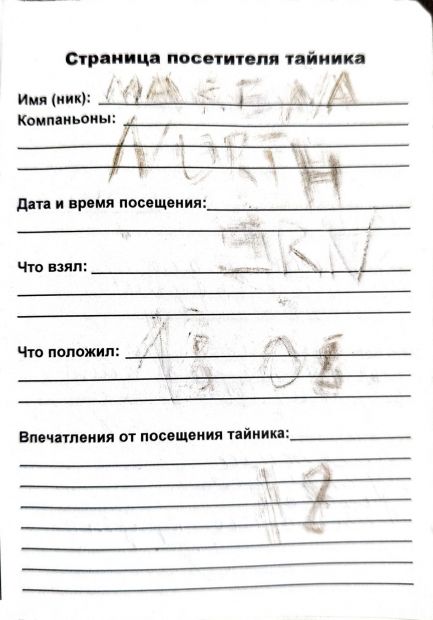 Страница посетителя тайника
Имя (ник): MAKENA
Компаньоны:
NORTH
Дата и время посещения:
ERN
Что взял:
Что положил: 18 08
Впечатления от посещения тайника:
18